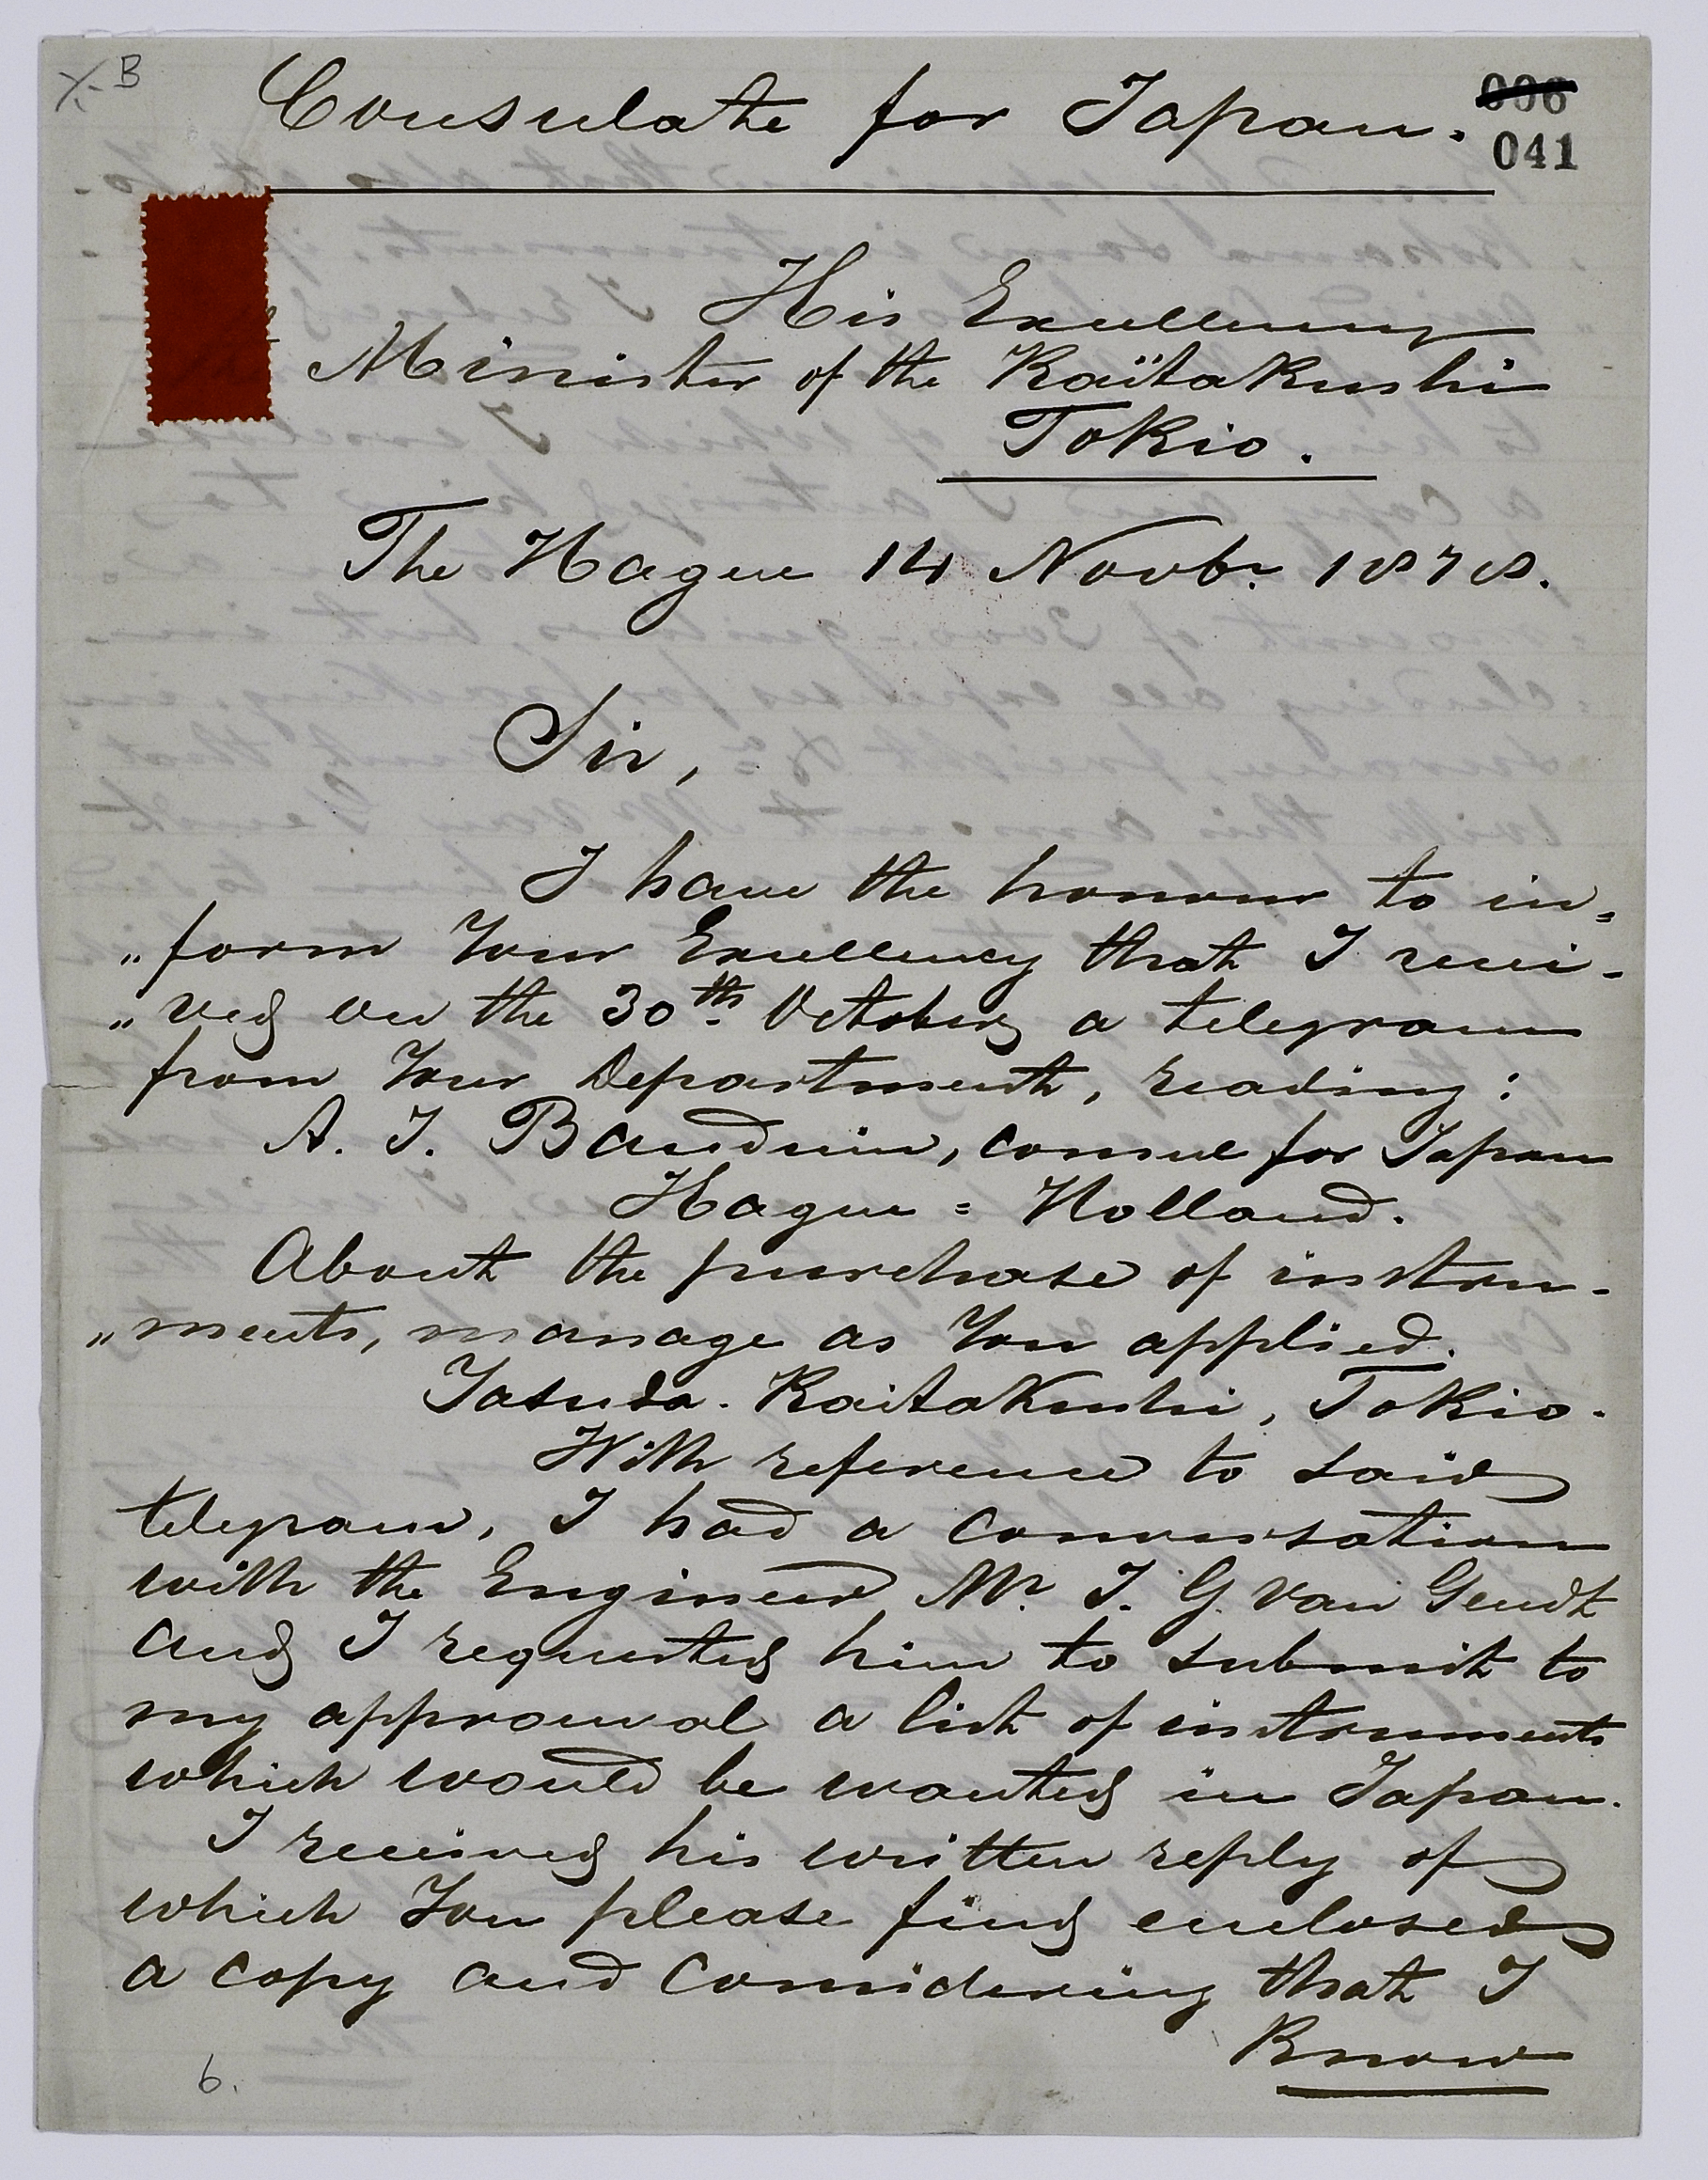 X. B
Consulate for Japan.
006
041
His Excellency
Minister of the Kaïtakushi
Tokio.
The Hague 14 Novbr. 1878.
Sir,
I have the honour to in=
„form Your Excellency that I recei-
„ved on the 30th. October a telegram
from Your Department, reading:
A. J. Bauduin, consul for Japan
Hague = Holland.
About the purchase of instru-
„ments, manage as You applied.
Yasuda. Kaitakushi, Tokio.
With reference to said
telegram, I had a conversation
with the Engineer Mr. J. G. van Gendt
and I requested him to submit to
my approuval a list of instruments
which would be wanted in Japan.
I received his written reply of
which You please find enclosed
a copy and considering that I
Know
6.